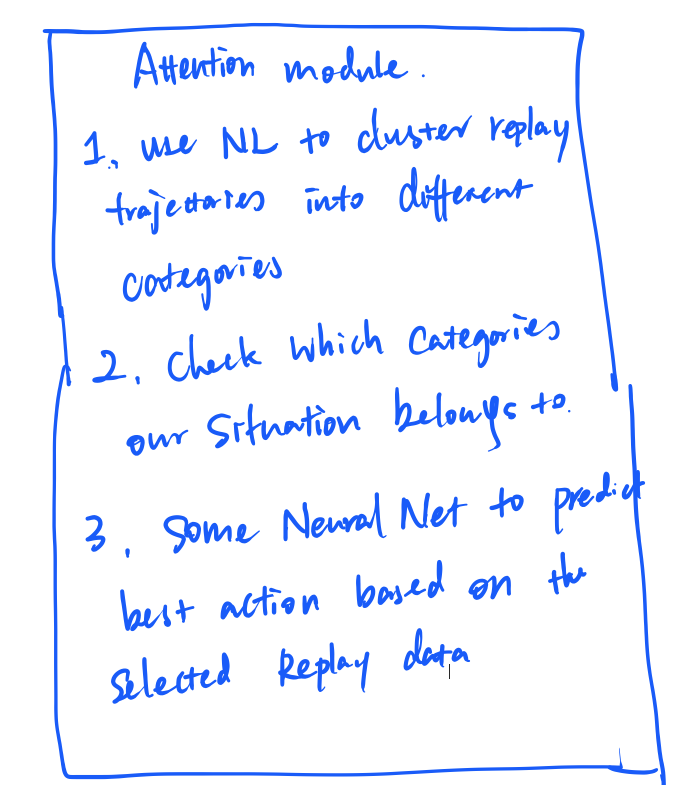 Attention module.
1. use NL to cluster replay
trajectories into different
categories
2. Check which categories
our situation belongs to.
3. Some Neural Net to predict
best action based on the
selected Replay data